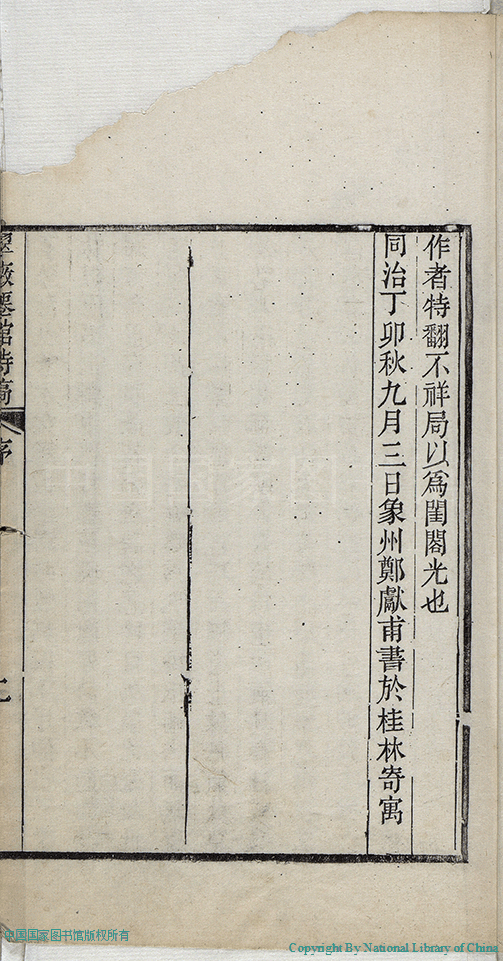 作者特翻不祥局以爲閨閣光也
同治丁卯秋九月三日象州鄭獻甫書於桂林寄寓
館詩稿
序
一
中国国家图
中国国家图书馆版权所有
Copyright By National Library of China